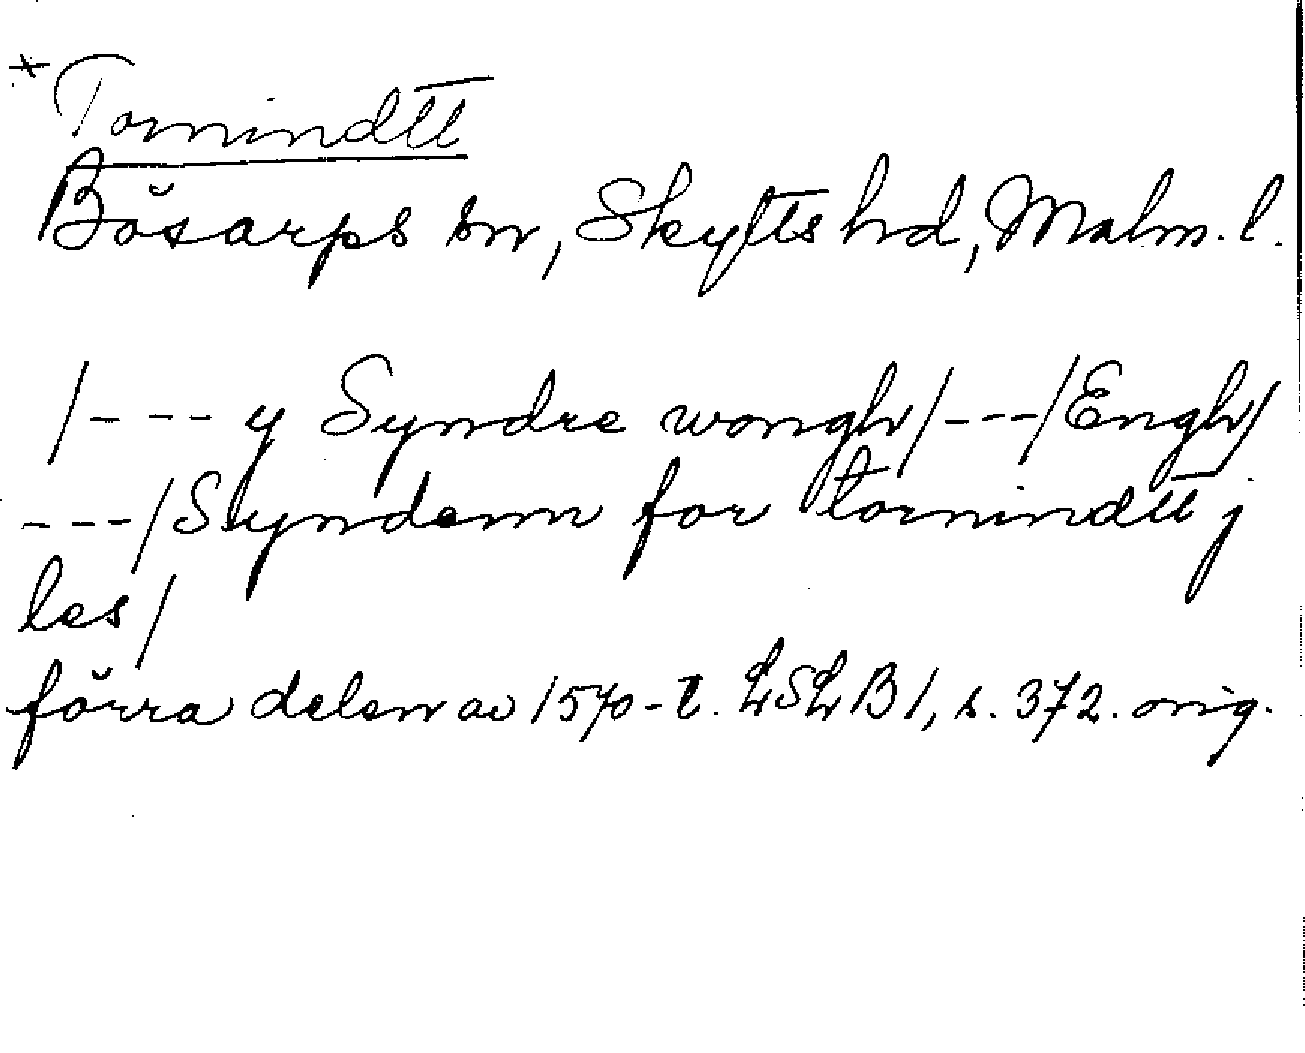 *Tornindtt
Bösarps sn, Skytts hd, Malm. l.
/---y Syndre wongh/---/Engh/
---/Syndenn for tornindtt j
les/
förra delen av 1570-t. LSLB1, s. 372. orig.